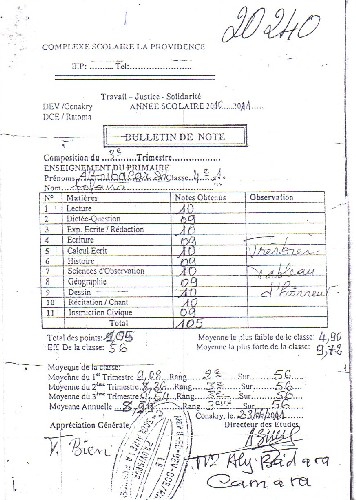 20240
COMPLEXE SCOLAIRE LA PROVIDENCE
B.P: ......... Tel:
Travail - Justice - Solidarité
DEV /Conakry ANNEE SCOLAIRE
DCE / Ratoma
BULLETIN DE NOTE
Composition du Trimestre
ENSEIGNEMENT DU PRIMAIRE
Prénoms Classe
Nom
N° Matières Notes Obtenus Observation
1 Lecture 10
2 Dictée-Question 09
3 Exp. Ecrite / Rédaction 10
4 Ecriture 09
5 Calcul Ecrit 10 Très bien
6 Histoire 09
7 Sciences d'Observation 10 Tableau
8 Géographie 09 d'Honneur
9 Dessin 10
10 Récitation / Chant 10
11 Instruction Civique 09
Total 105
Total des points: 105 Moyenne le plus faible de la classe: 4,90
Eff De la classe: 56 Moyenne la plus forte de la classe: 9,72
Moyenne de la classe:
Moyenne du 1er Trimestre Rang Sur 56
Moyenne du 2ème Trimestre Rang Sur 56
Moyenne du 3ème Trimestre Rang Sur 56
Moyenne Annuelle Rang Sur 56
Conakry, le
Appréciation Générale Directeur des Etudes
T. Bien
Mr Aly Badara
Camara